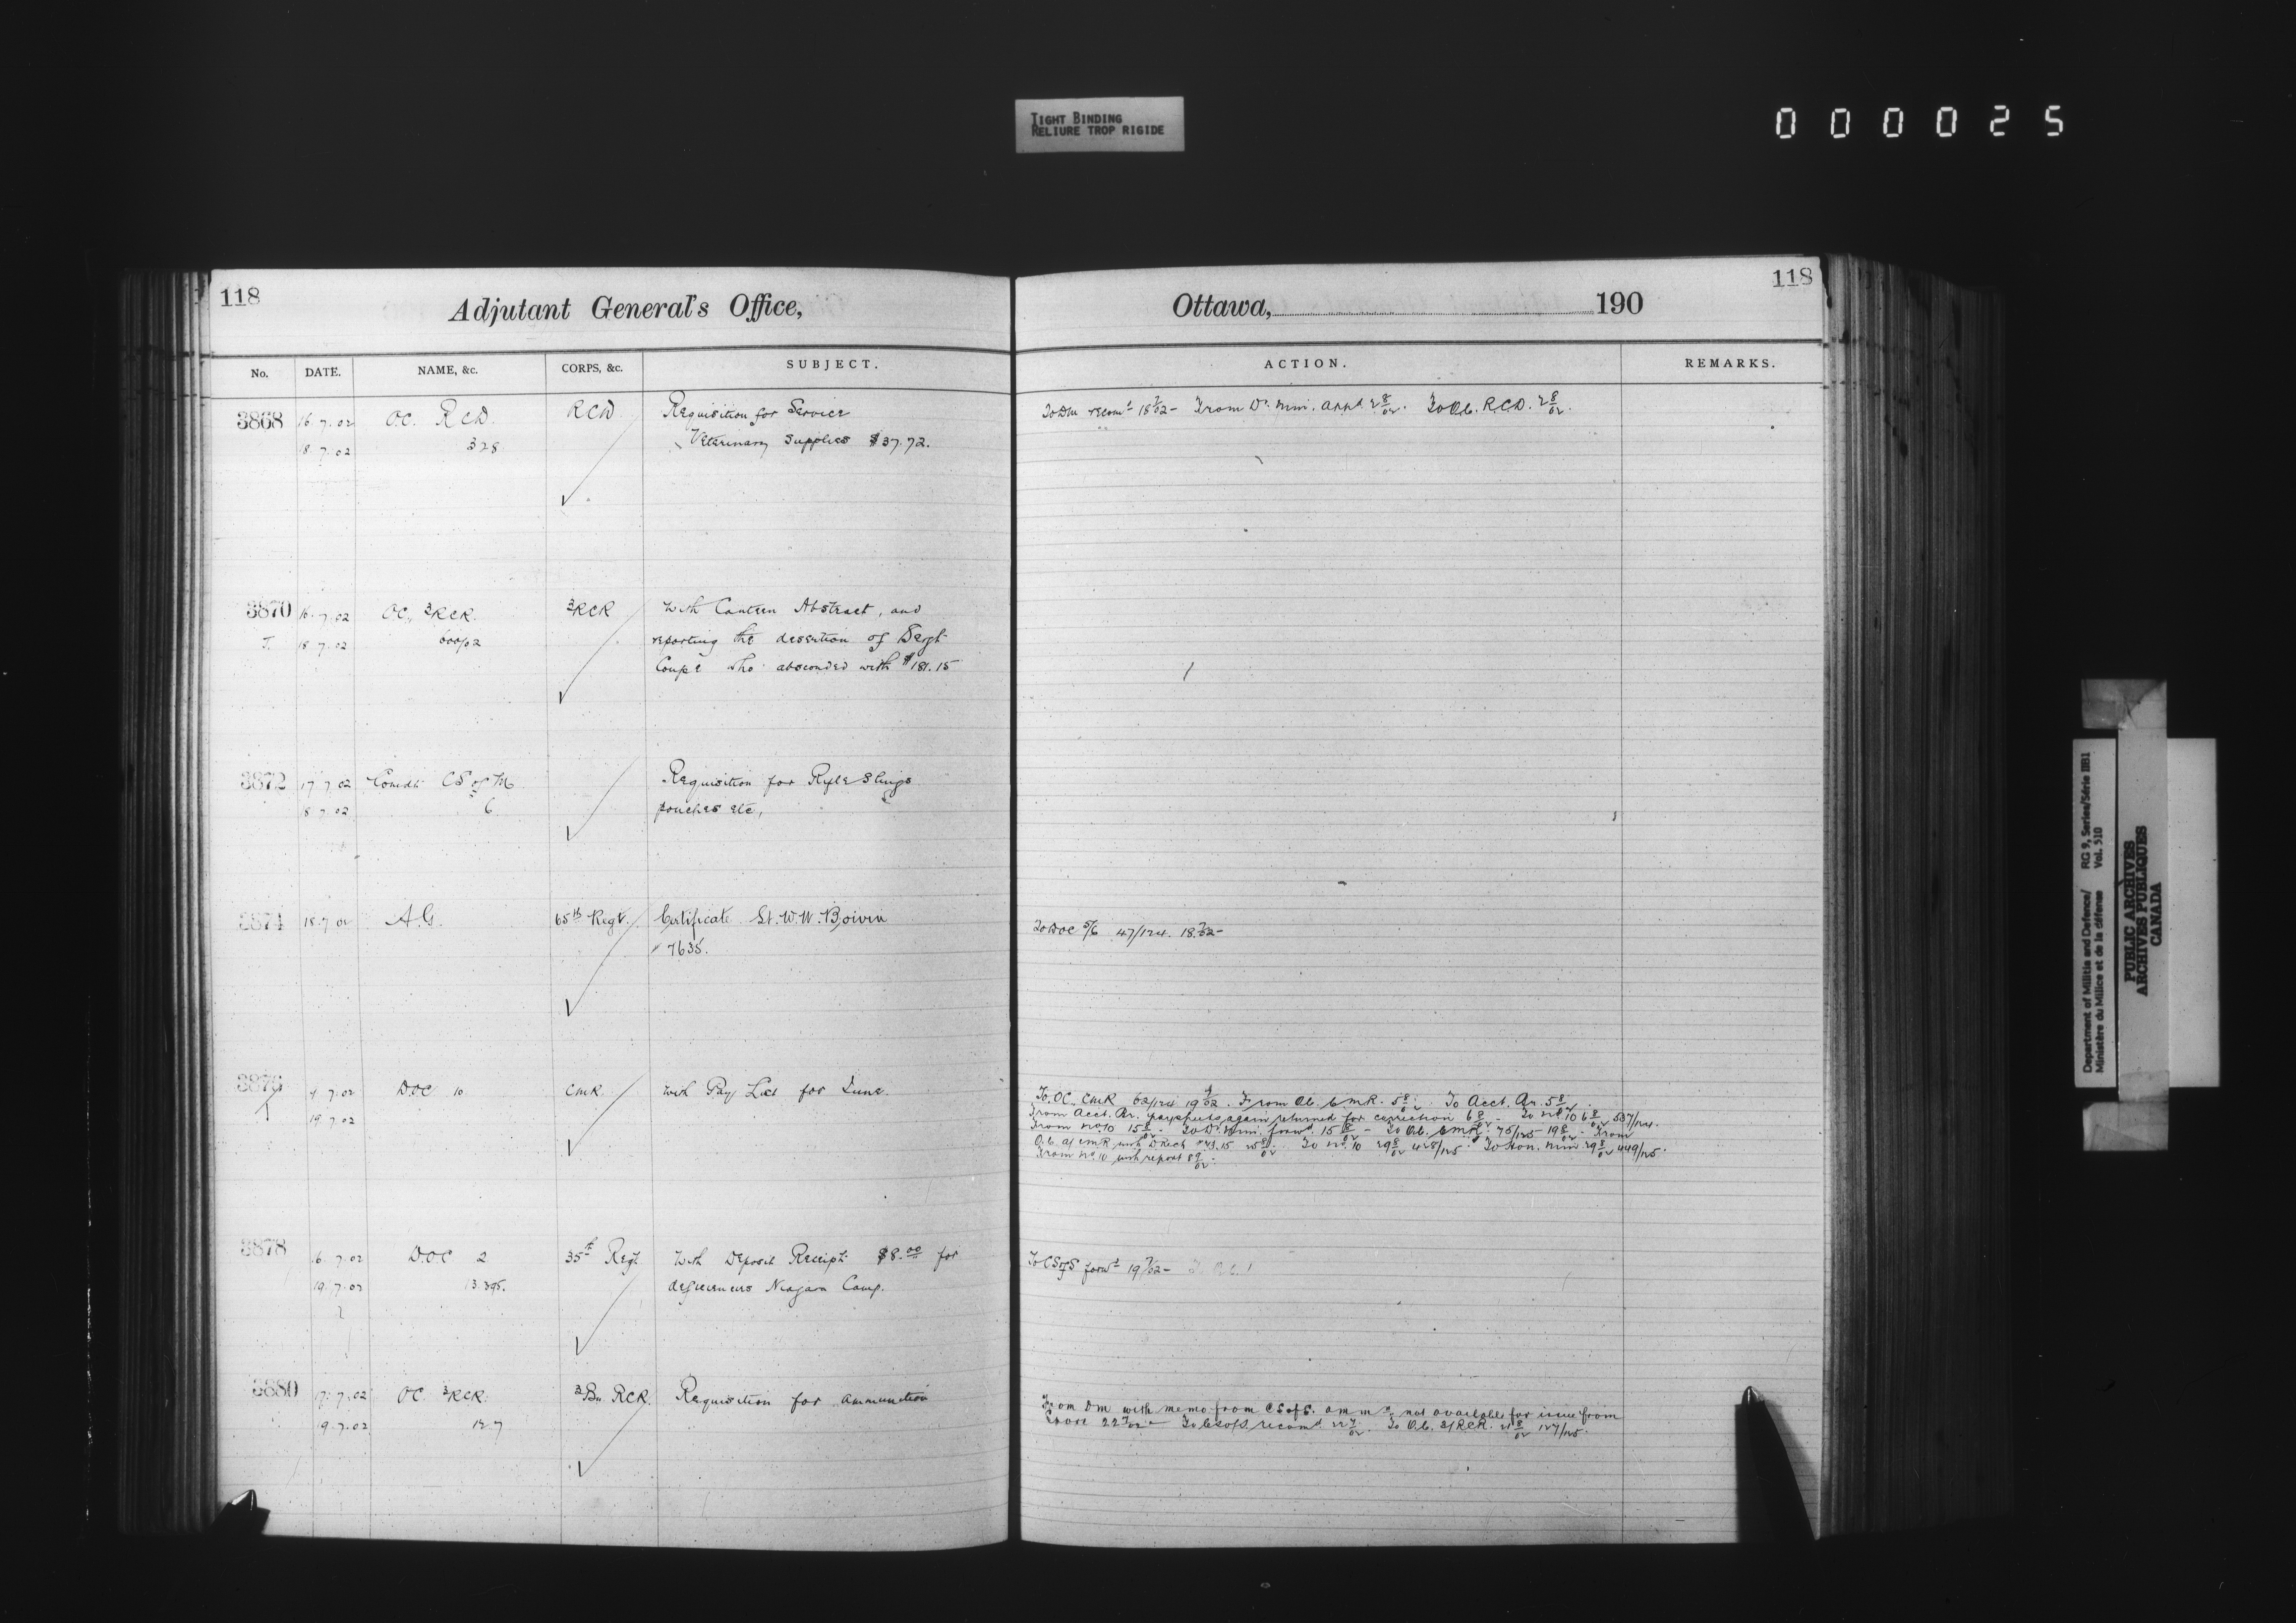 TIGHT BINDING
RELIURE TROP RIGIDE
000025
118
Adjutant General's Office,
No. DATE. NAME, &c. CORPS, &c. SUBJECT.
3868 16.7.02 O.C. RCD. RCD Requisition for Service
18.7.02 328 Veterinary Supplies $37.72.
3870 16.7.02 OC, 3RCR. 3RCR With Canteen Abstract, and
18.7.02 reporting the desertion of Sergt
Coupé who absconded with $181.15
3872 17.7.02 Comdt CS of M Requisition for Rifle Slings
18.7.02 6 pouches etc,
3874 18.7.02 A.G. 65th Regt. Certificate Lt. W.W. Boivin
7635.
3876 7.02 DOC 10 CMR. with Pay List for June.
19.7.02
3878 16.7.02 DOC 2 35th Regt With Deposit Receipt $8.00 for
19.7.02 13.395. deficiencies Niagara Camp.
3880 17.7.02 OC 3RCR. 3Bn RCR. Requisition for ammunition
19.7.02 127
118
Ottawa, 190
ACTION. REMARKS.
To DM recomd 18 7/02 - From Dr. Min. appd 2 8/02. To O.C. RCD. 2 8/02.
To DOC 5/6 47/124. 18 7/02 -
To OC. CMR 62/124 19 7/02. From O.C. CMR. 5 8/02. To Acct. Br. 5 8/02.
From Acct. Br. paysheets again returned for correction 6 8/02 To No 10 6 8/02 537/124.
From No 10 15 8/02. To Dr. Min. forwd. 15 8/02 - To O.C. CMR. 75/125 19 8/02. From
O.C. CMR with 15 25 8/02. To No. 10 29 8/02 428/125. To Hon. Min 29 8/02 449/125.
From No. 10 with report 8 9/02.
To CS of S forwd 19 7/02 -
From DM with memo from CS of S. ammn not available for issue from
Store 22 7/02 - To CS of S. recomd. To O.C. 3/RCR. 127/125.
Department of Militia and Defence/ RG 9, Series/Série IIB1
Ministère du Milice et de la défense Vol. 510
PUBLIC ARCHIVES
ARCHIVES PUBLIQUES
CANADA